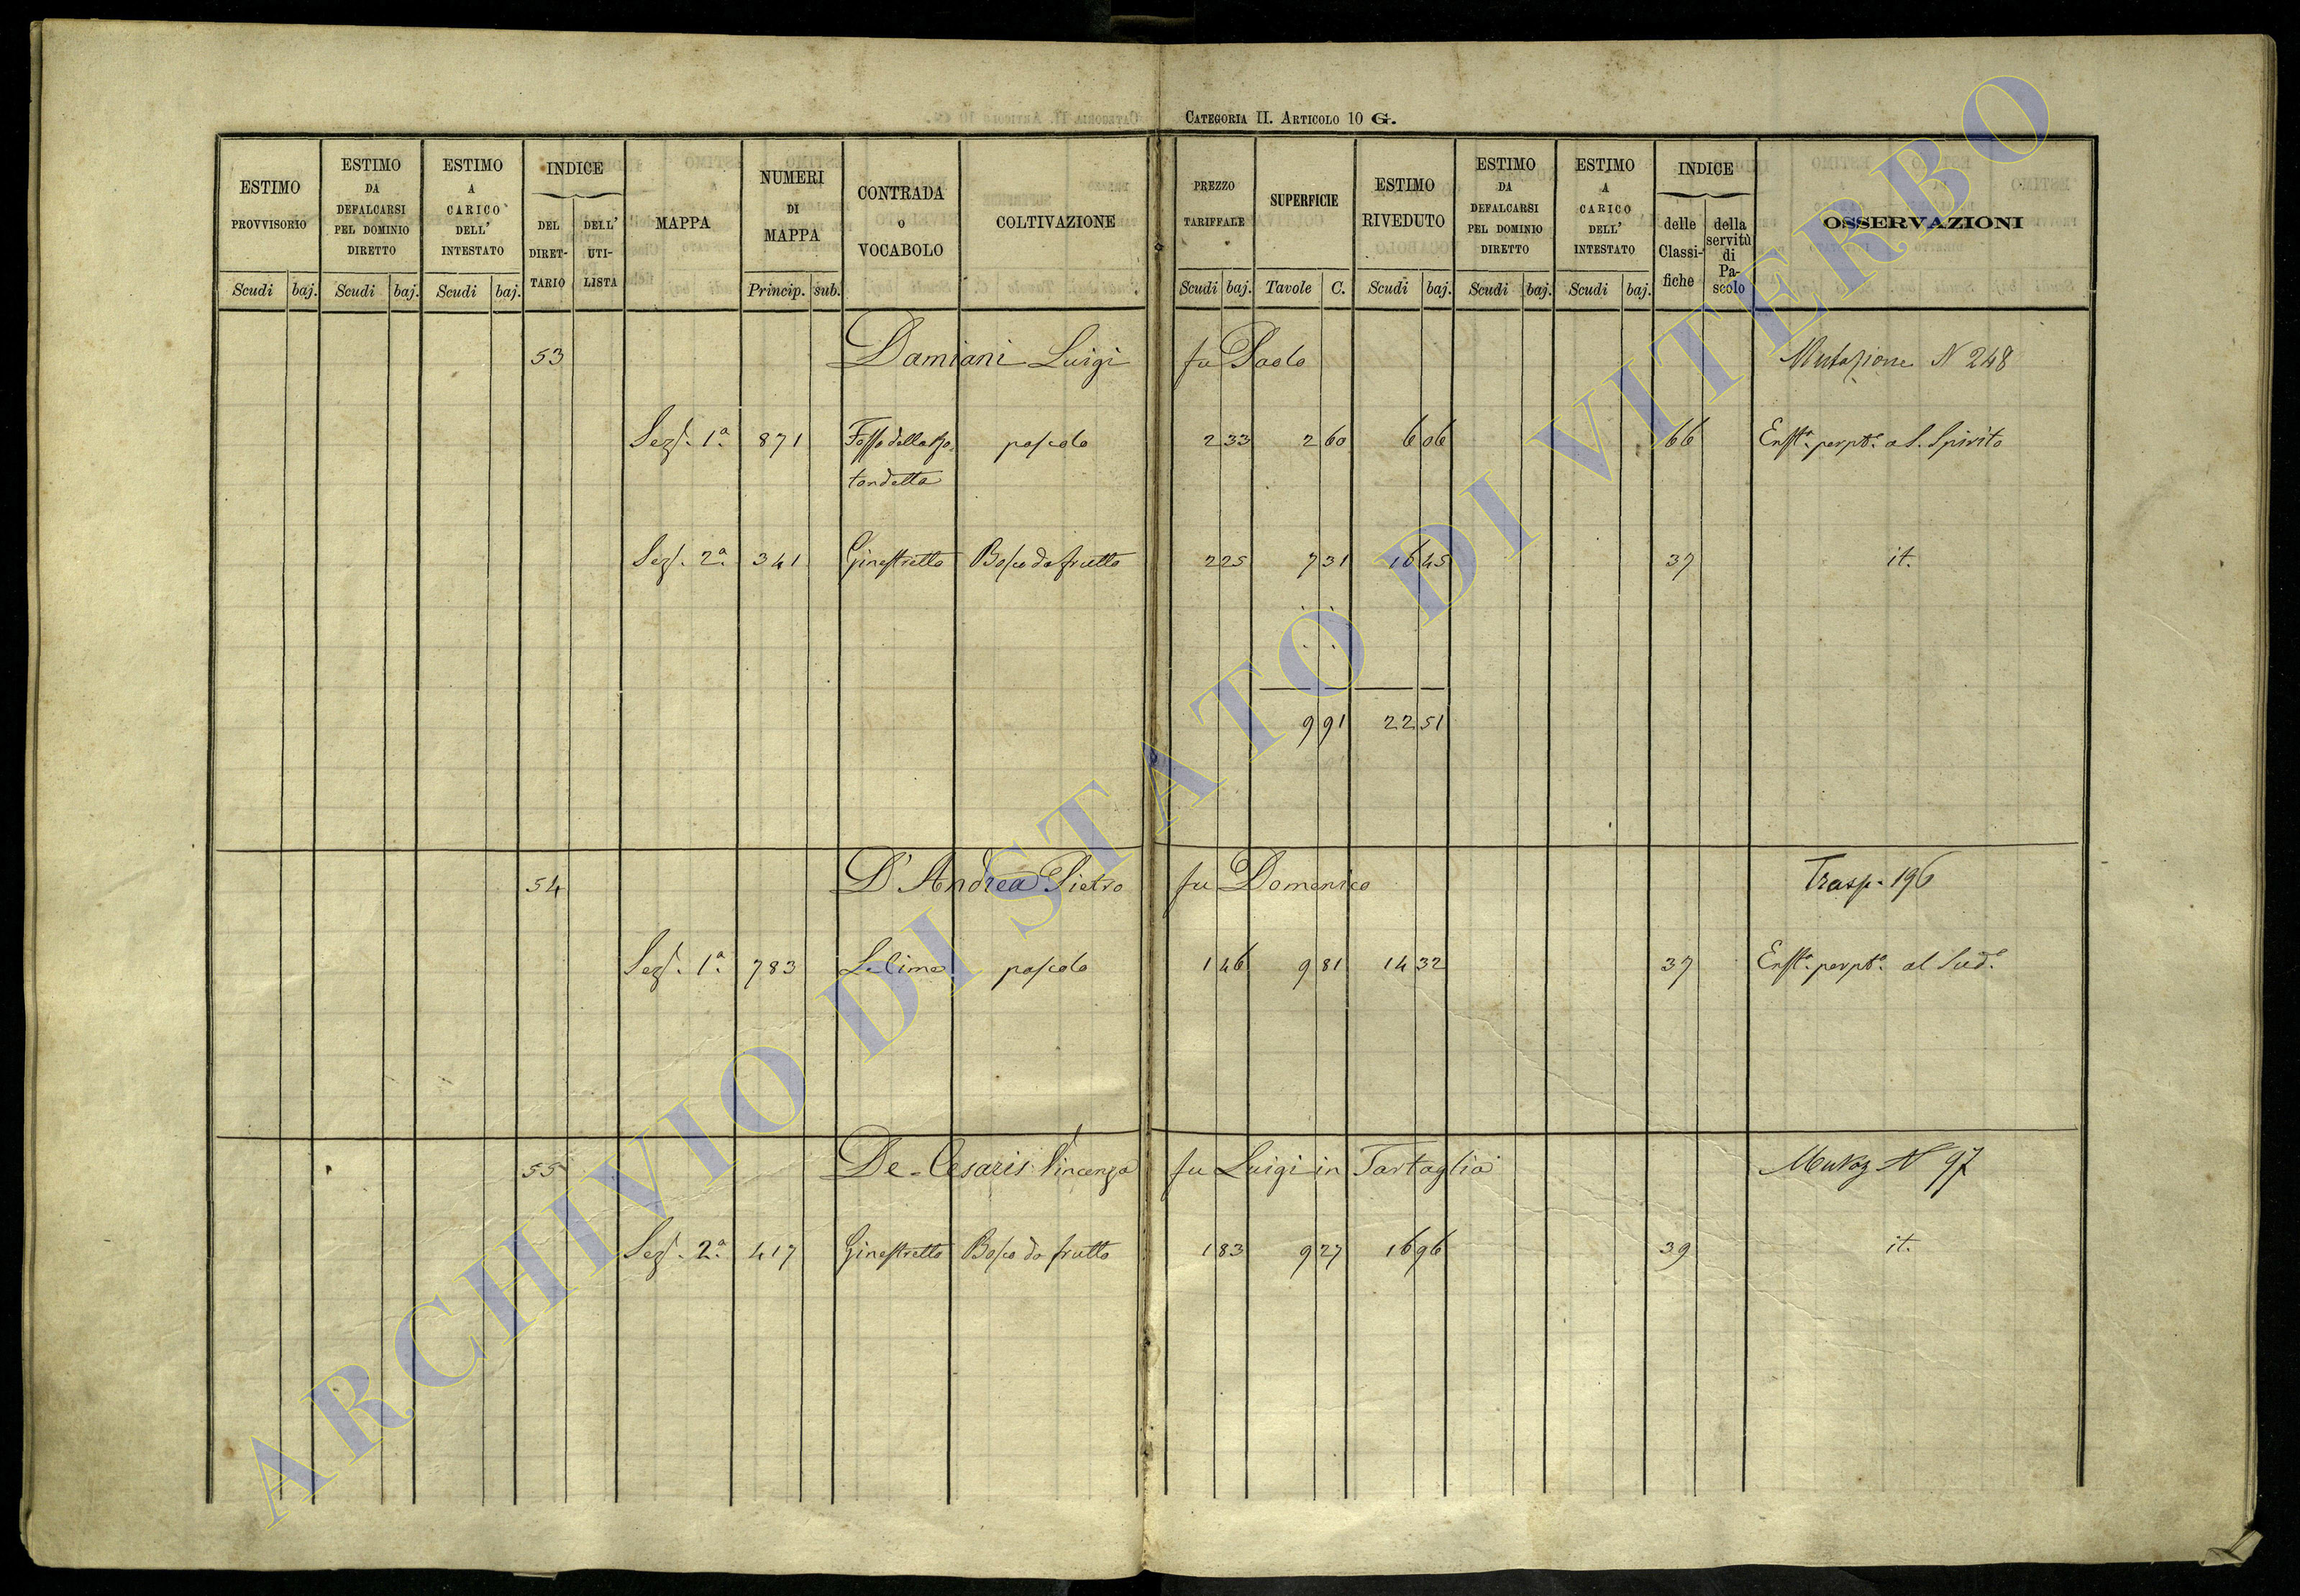 CATEGORIA II. ARTICOLO 10 G.
ESTIMO PROVVISORIO Scudi baj.
ESTIMO DA DEFALCARSI PEL DOMINIO DIRETTO Scudi baj.
ESTIMO A CARICO DELL' INTESTATO Scudi baj.
INDICE DEL DIRET- TARIO DELL' UTI- LISTA
MAPPA
NUMERI DI MAPPA Princip. sub.
CONTRADA O VOCABOLO
COLTIVAZIONE
PREZZO TARIFFALE Scudi baj.
SUPERFICIE Tavole C.
ESTIMO RIVEDUTO Scudi baj.
ESTIMO DA DEFALCARSI PEL DOMINIO DIRETTO Scudi baj.
ESTIMO A CARICO DELL' INTESTATO Scudi baj.
INDICE delle Classi- fiche della servitù di Pa- scolo
OSSERVAZIONI
53 Damiani Luigi fu Paolo Mutazione N 248
Sez. 1ª 871 Fosso della pascolo 2 33 2 60 6 06 66 Enft. perpt. a S. Spirito
Sez. 2ª 341 Ginestretto Bosco da frutto 2 25 7 31 16 45 37 it.
9 91 22 51
54 D'Andrea Pietro fu Domenico Trasp. 196
Sez. 1ª 783 pascolo 1 46 9 81 14 32 37 Enft. perpt. al Sud.
55 De-Cesaris Vincenza fu Luigi in Tartaglia Mutaz N 97
Sez. 2ª 417 Ginestretto Bosco da frutto 1 83 9 27 16 96 39 it.
ARCHIVIO DI STATO DI VITERBO